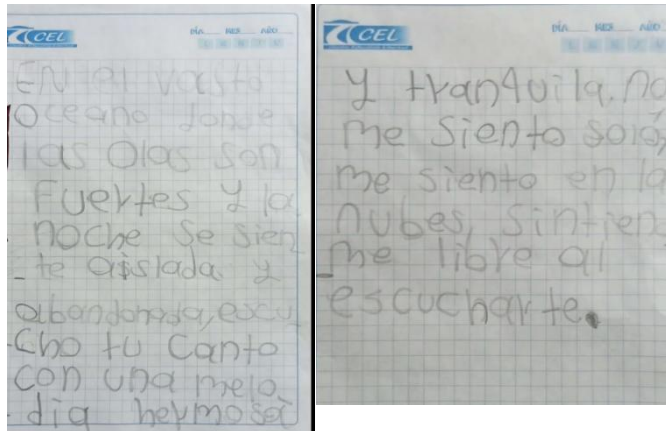 CEL
DÍA MES AÑO
EN el vasto
oceano donde
las olas son
Fuertes y la
noche se sien
te aislada y
abandonada, escu
cho tu canto
con una melo
dia hermosa
CEL
DÍA MES AÑO
y tranquila. no
me siento sola,
me siento en la
nubes, sintien
me libre al
escucharte.